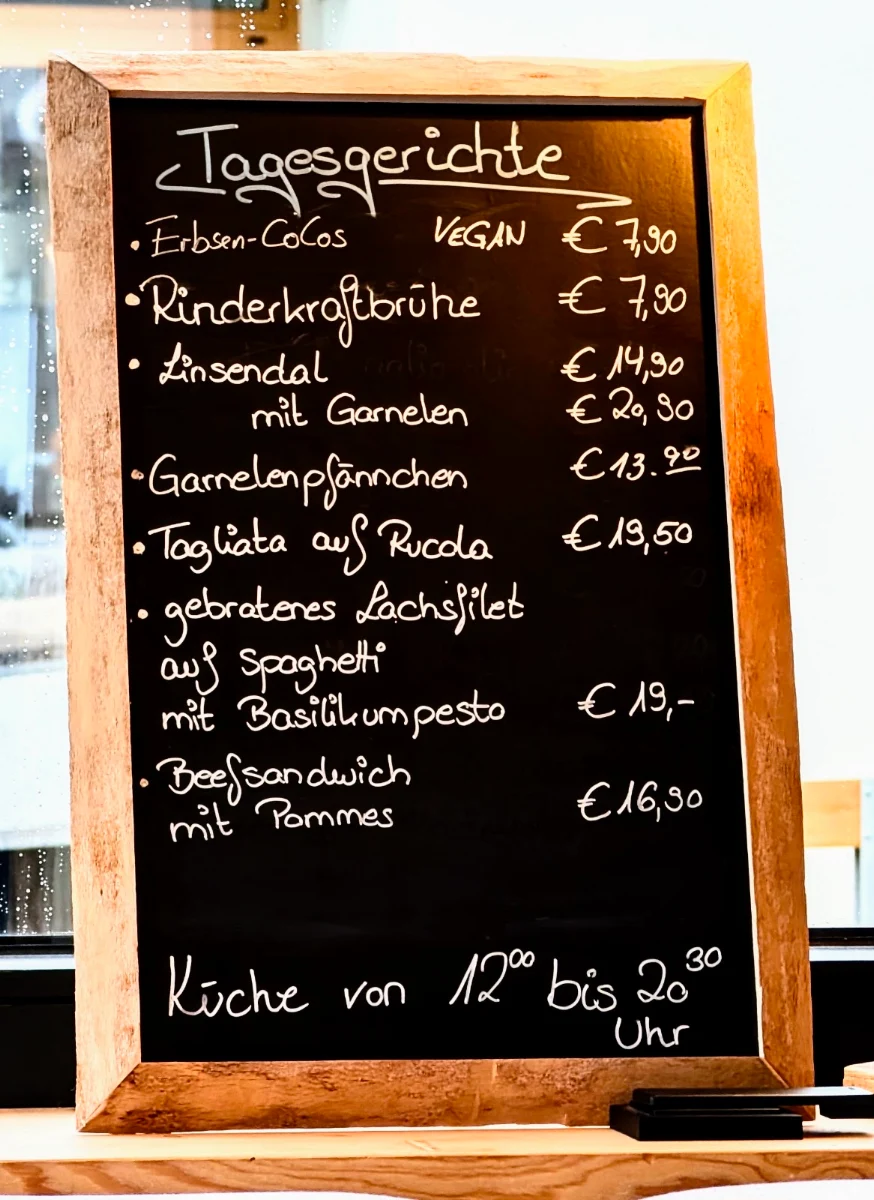 Tagesgerichte
• Erbsen-CoCos VEGAN € 7,90
• Rinderkraftbrühe € 7,90
• Linsendal € 14,90
mit Garnelen € 20,90
• Garnelenpfännchen € 13.90
• Tagliata auf Rucola € 19,50
• gebratenes Lachsfilet
auf Spaghetti
mit Basilikumpesto € 19,-
• Beefsandwich
mit Pommes € 16,90
Küche von 12⁰⁰ bis 20³⁰
Uhr